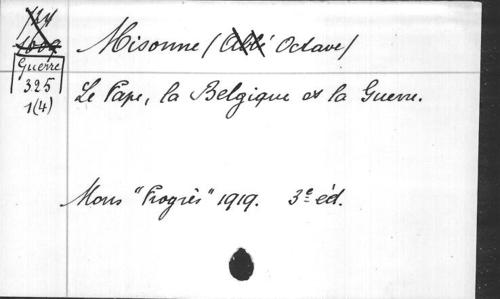 Misonne (Abbé Octave)
Guerre
325
1(4)
Le Pape, la Belgique et la Guerre.
Mons "Progrès" 1919. 3e éd.